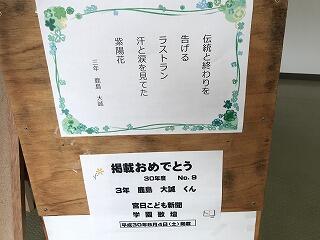 伝統と終わりを
告げる
ラストラン
汗と涙を見てた
紫陽花
三年 鹿島 大誠
掲載おめでとう
30年度 No.9
3年 鹿島 大誠 くん
宮日こども新聞
学園歌壇
平成30年8月4日(土)掲載